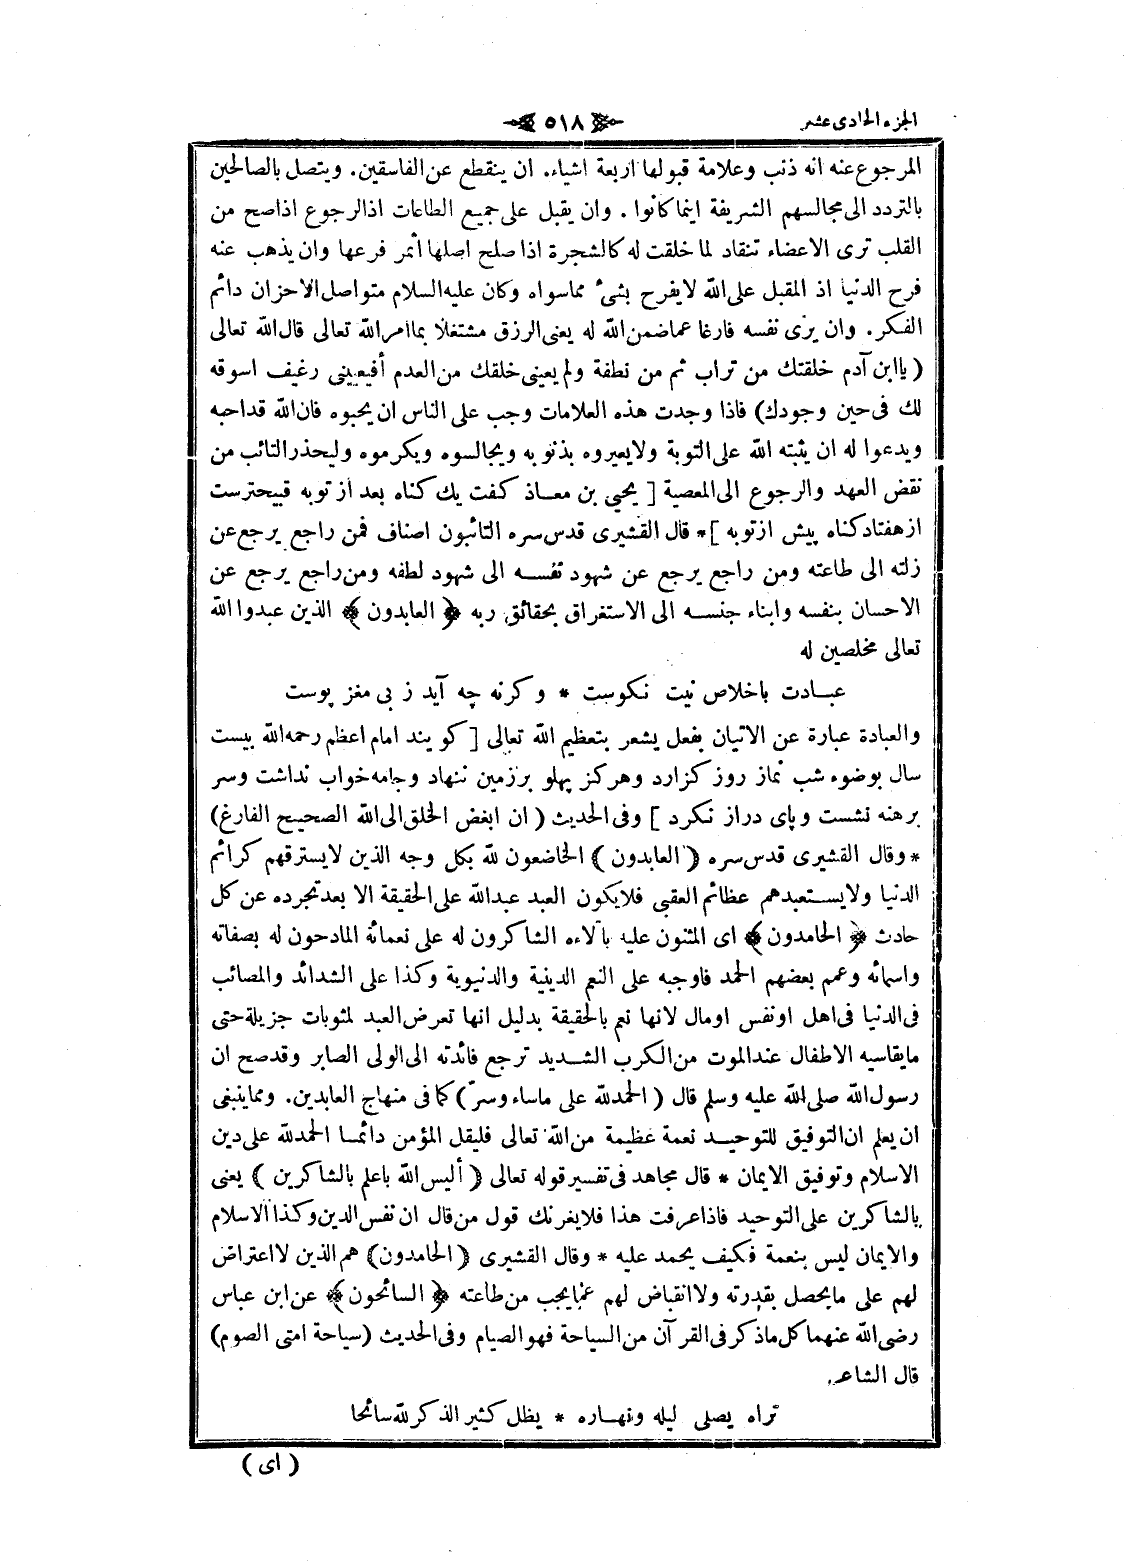 الجزء الحادى عشر
٥١٨
المرجوع عنه انه ذنب وعلامة قبولها اربعة اشياء. ان ينقطع عن الفاسقين. ويتصل بالصالحين
بالتردد الى مجالسهم الشريفة اينما كانوا. وان يقبل على جميع الطاعات اذالرجوع اذاصح من
القلب ترى الاعضاء تنقاد لما خلقت له كالشجرة اذا صلح اصلها أثمر فرعها وان يذهب عنه
فرح الدنيا اذ المقبل على الله لايفرح بشئ مماسواه وكان عليه السلام متواصل الاحزان دائم
الفكر. وان يرى نفسه فارغا عماضمن الله له يعنى الرزق مشتغلا بماامر الله تعالى قال الله تعالى
( ياابن آدم خلقتك من تراب ثم من نطفة ولم يعينى خلقك من العدم أفيعيينى رغيف اسوقه
لك فى حين وجودك) فاذا وجدت هذه العلامات وجب على الناس ان يحبوه فان الله قداحبه
ويدعوا له ان يثبته الله على التوبة ولايعيروه بذنوبه ويجالسوه ويكرموه وليحذر التائب من
نقض العهد والرجوع الى المعصية [ يحيى بن معاذ كفت يك كناه بعد از توبه قبيحترست
از هفتاد كناه پيش از توبه ]* قال القشيرى قدس سره التائبون اصناف فمن راجع يرجع عن
زلته الى طاعته ومن راجع يرجع عن شهود نفسه الى شهود لطفه ومن راجع يرجع عن
الاحسان بنفسه وابناء جنسه الى الاستغراق بحقائق ربه ﴿ العابدون ﴾ الذين عبدوا الله
تعالى مخلصين له
عبادت باخلاص نيت نكوست * وكرنه چه آيد ز بى مغز پوست
والعبادة عبارة عن الاتيان بفعل يشعر بتعظيم الله تعالى [ كويند امام اعظم رحمه الله بيست
سال بوضوء شب نماز روز كزارد وهركز پهلو برزمين ننهاد وجامه خواب نداشت وسر
برهنه نشست وپاى دراز نكرد ] وفى الحديث ( ان ابغض الخلق الى الله الصحيح الفارغ)
* وقال القشيرى قدس سره ( العابدون ) الخاضعون لله بكل وجه الذين لايسترقهم كرائم
الدنيا ولايستعبدهم عظائم العقبى فلايكون العبد عبدالله على الحقيقة الا بعد تجرده عن كل
حادث ﴿ الحامدون ﴾ اى المثنون عليه بآلاءه الشاكرون له على نعمائه المادحون له بصفاته
واسمائه وعمم بعضهم الحمد فاوجبه على النعم الدينية والدنيوية وكذا على الشدائد والمصائب
فى الدنيا فى اهل اونفس اومال لانها نعم بالحقيقة بدليل انها تعرض العبد لمثوبات جزيلة حتى
مايقاسيه الاطفال عند الموت من الكرب الشديد ترجع فائدته الى الولى الصابر وقدصح ان
رسول الله صلى الله عليه وسلم قال ( الحمدلله على ماساء وسرّ ) كما فى منهاج العابدين. ومماينبغى
ان يعلم ان التوفيق للتوحيد نعمة عظيمة من الله تعالى فليقل المؤمن دائما الحمدلله على دين
الاسلام وتوفيق الايمان * قال مجاهد فى تفسير قوله تعالى ( أليس الله باعلم بالشاكرين ) يعنى
بالشاكرين على التوحيد فاذاعرفت هذا فلايغرنك قول من قال ان نفس الدين وكذا الاسلام
والايمان ليس بنعمة فكيف يحمد عليه * وقال القشيرى ( الحامدون) هم الذين لااعتراض
لهم على مايحصل بقدرته ولاانقباض لهم عمايجب من طاعته ﴿ السائحون ﴾ عن ابن عباس
رضى الله عنهما كل ماذكر فى القرآن من السياحة فهو الصيام وفى الحديث (سياحة امتى الصوم)
قال الشاعر
تراه يصلى ليله ونهاره * يظل كثير الذكر لله سائحا
( اى )